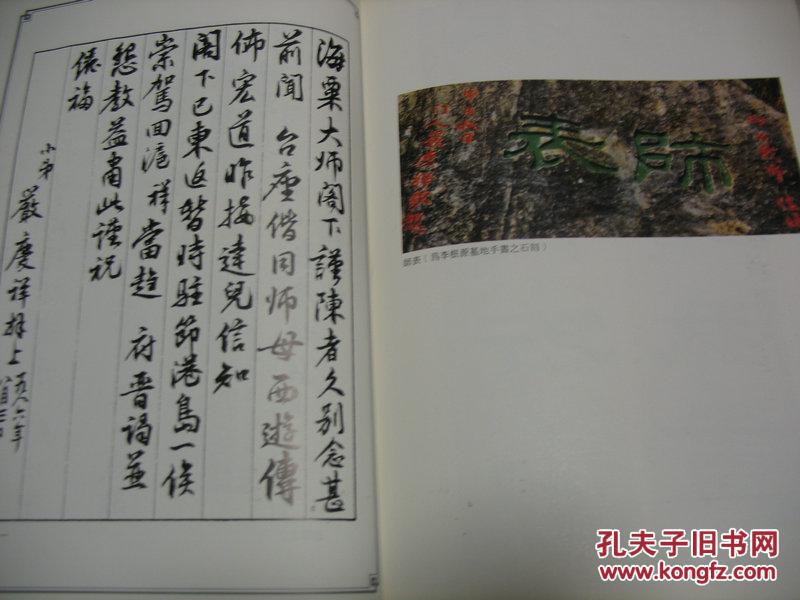 海粟大师阁下謹陳者久别念甚
前闻 台座偕同师母西遊傳
佈宏道昨接達兒信知
阁下已東返暂時駐節港島一俟
崇駕回滬祥當趋 府晋謁並
懇教益肃此谨祝
儷福
小弟 嚴慶祥拜上
師表
師表（爲李根源墓地手書之石刻）
孔夫子旧书网
www.kongfz.com